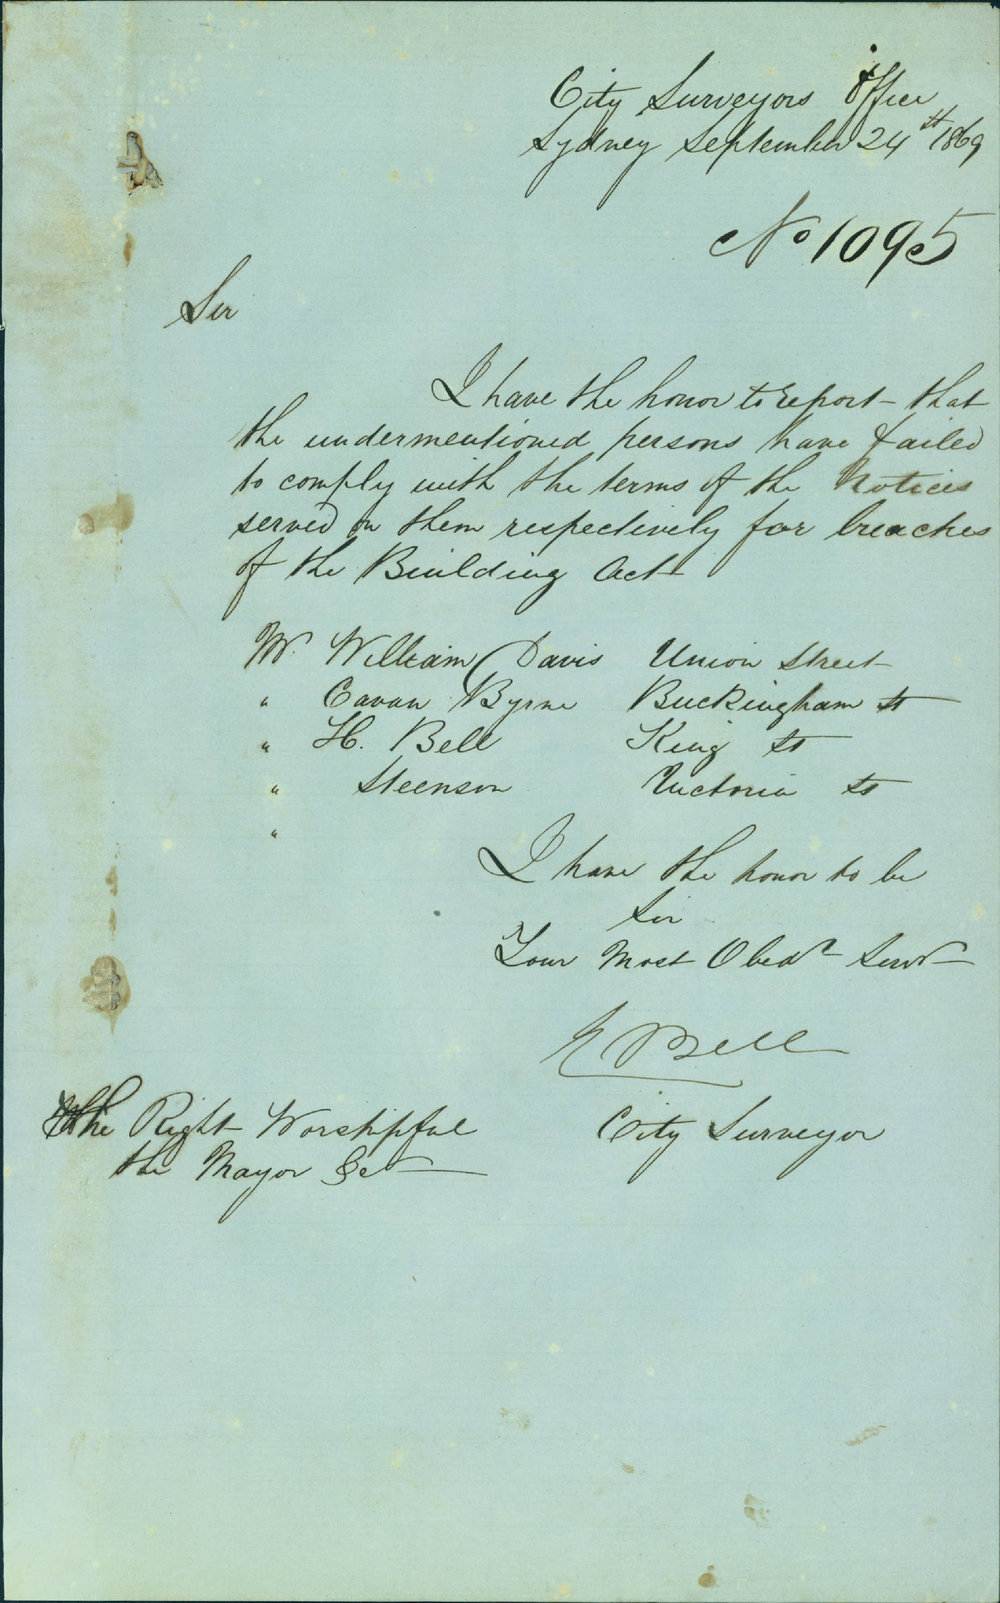 City Surveyors Office
Sydney September 24th 1869
No 1095
Sir
I have the honor to report - that
the undermentioned persons have failed
to comply with the terms of the Notices
served on them respectively for breaches
of the Building Act
Mr William Davis Union Street
" Cavan Byrne Buckingham St
" H. Bell King St
" Steenson Victoria St
"
I have the honor to be
Sir
Your Most Obedt Servt
E Bell
City Surveyor
The Right Worshipful
the Mayor &c